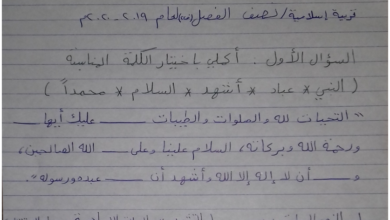 تربية إسلامية / نصف الفصل لعام ٢٠١٩-٢٠٢٠م
السؤال الأول: أكملي باختيار الكلمة المناسبة
( النبي * عباد * أشهد * السلام * محمداً )
" التحيات لله والصلوات والطيبات ــــــ عليك أيها ــــــ
ورحمة الله وبركاته، السلام علينا وعلى ــــــ الله الصالحين،
و ــــــ أن لا إله إلا الله وأشهد أن ــــــ عبده ورسوله".